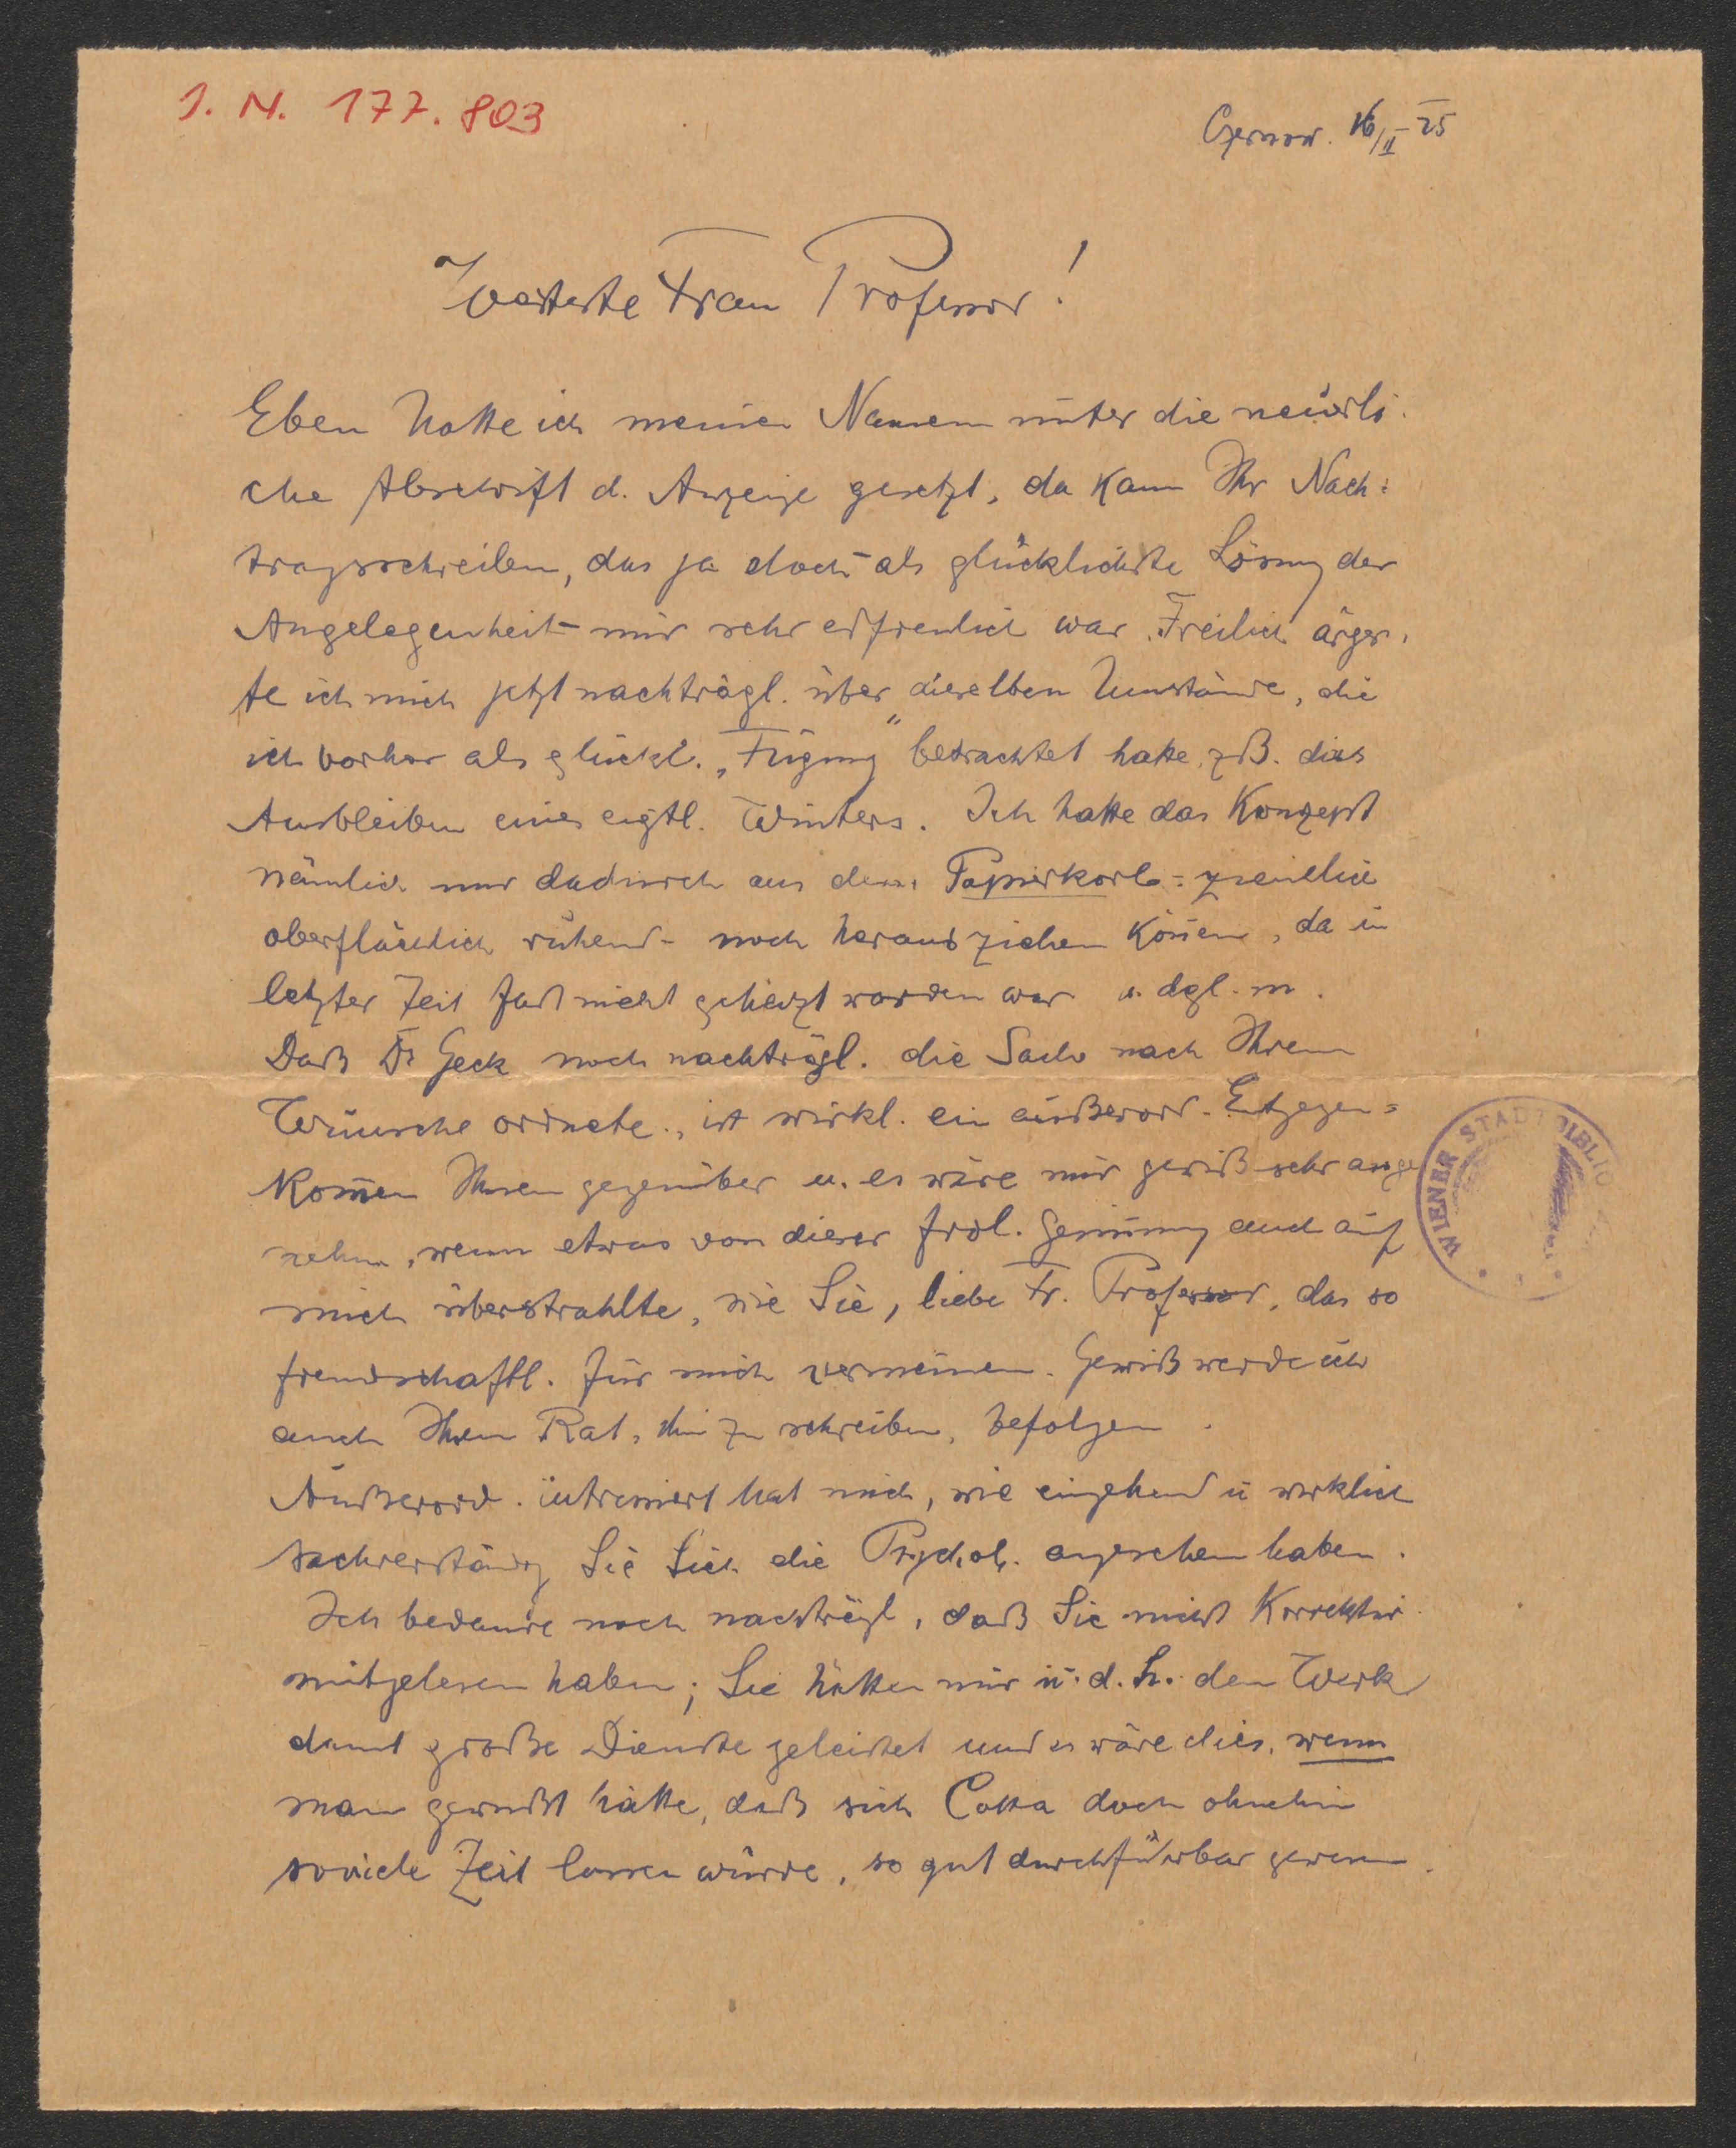 I. N. 177.803
Czernow. 16/II 25
Werteste Frau Professor!
Eben hatte ich meinen Namen unter die neuerli-
che Abschrift d. Anzeige gesetzt, da kam Ihr Nach=
tragsschreiben, das ja doch - als glücklichste Lösung der
Angelegenheit - mir sehr erfreulich war. Freilich ärger-
te ich mich jetzt nachträgl. über dieselben Umstände, die
ich vorher als glückl. „Fügung" betrachtet hatte, zB. das
Ausbleiben eines eigtl. Winters. Ich hatte das Konzept
nämlich nur dadurch aus dem Papierkorb - ziemlich
oberflächlich ruhend - noch herausziehen können, da in
letzter Zeit fast nicht geheizt worden war u. dgl. m.
Daß Dr Geck noch nachträgl. die Sache nach Ihrem
Wunsche ordnete, ist wirkl. ein außerord. Entgegen=
kommen Ihnen gegenüber u. es wäre mir gewiß sehr ange
nehm, wenn etwas von dieser frdl. Gesinnung auch auf
mich überstrahlte, wie Sie, liebe Fr. Professor, das so
freundschaftl. für mich vermeinen. Gewiß werde ich
auch Ihren Rat, ihm zu schreiben, befolgen.
Außerord. intressiert hat mich, wie eingehend u wirklich
sachverständig Sie Sich die Psychol. angesehen haben.
Ich bedaure noch nachträgl, daß Sie nicht Korrektur
mitgelesen haben; Sie hätten mir u. d. h. dem Werk
damit große Dienste geleistet und es wäre dies, wenn
man gewußt hätte, daß sich Cotta doch ohnehin
soviele Zeit lassen würde, so gut durchführbar gewesen.
WIENER STADTBIBLIO